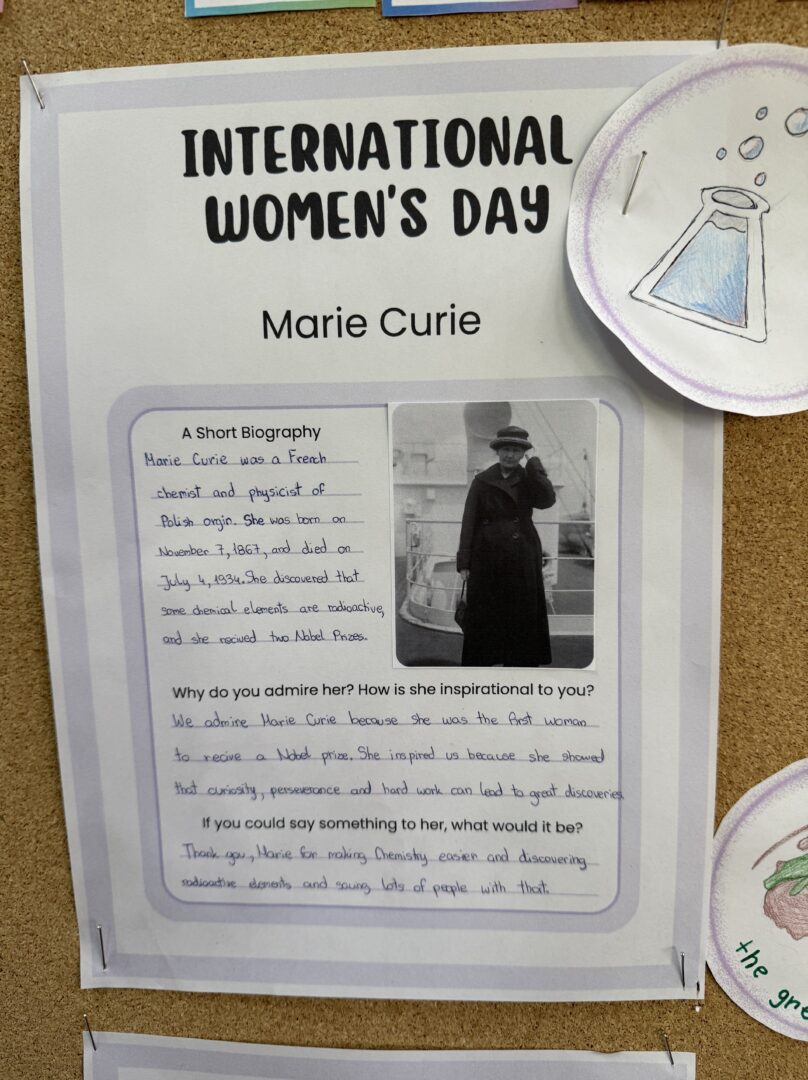 INTERNATIONAL
WOMEN'S DAY
Marie Curie
A Short Biography
Marie Curie was a French
chemist and physicist of
Polish orgin. She was born on
November 7, 1867, and died on
July 4, 1934. She discovered that
some chemical elements are radioactive,
and she recived two Nobel Prizes.
Why do you admire her? How is she inspirational to you?
We admire Marie Curie because she was the first woman
to recive a Nobel prize. She inspired us because she showed
that curiosity, perseverance and hard work can lead to great discoveries.
If you could say something to her, what would it be?
Thank you, Marie for making Chemistry easier and discovering
radioactive elements and saving lots of people with that.
the gre